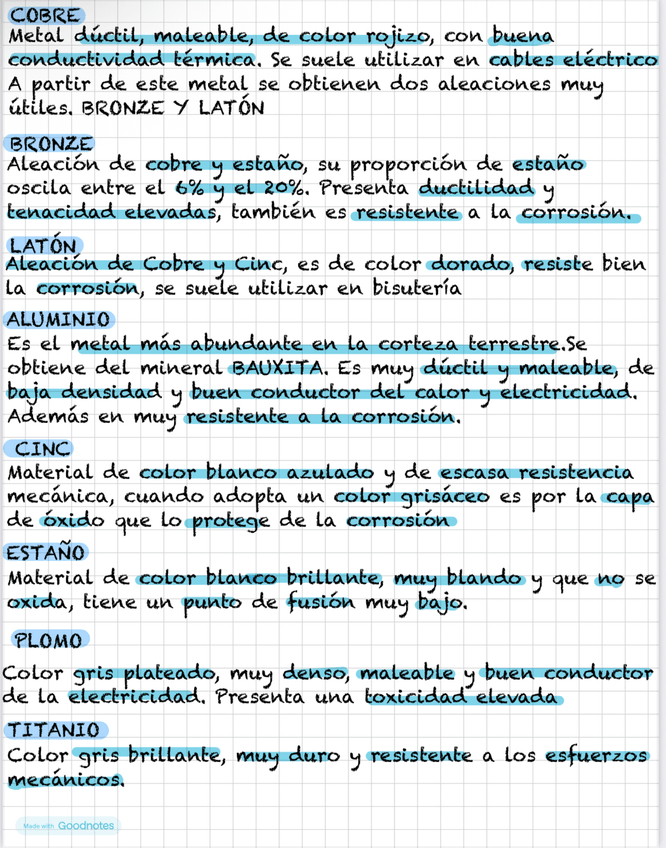 COBRE
Metal dúctil, maleable, de color rojizo, con buena
conductividad térmica. Se suele utilizar en cables eléctrico
A partir de este metal se obtienen dos aleaciones muy
útiles. BRONZE Y LATÓN
BRONZE
Aleación de cobre y estaño, su proporción de estaño
oscila entre el 6% y el 20%. Presenta ductilidad y
tenacidad elevadas, también es resistente a la corrosión.
LATÓN
Aleación de Cobre y Cinc, es de color dorado, resiste bien
la corrosión, se suele utilizar en bisutería
ALUMINIO
Es el metal más abundante en la corteza terrestre.Se
obtiene del mineral BAUXITA. Es muy dúctil y maleable, de
baja densidad y buen conductor del calor y electricidad.
Además en muy resistente a la corrosión.
CINC
Material de color blanco azulado y de escasa resistencia
mecánica, cuando adopta un color grisáceo es por la capa
de óxido que lo protege de la corrosión
ESTAÑO
Material de color blanco brillante, muy blando y que no se
oxida, tiene un punto de fusión muy bajo.
PLOMO
Color gris plateado, muy denso, maleable y buen conductor
de la electricidad. Presenta una toxicidad elevada
TITANIO
Color gris brillante, muy duro y resistente a los esfuerzos
mecánicos.
Made with Goodnotes